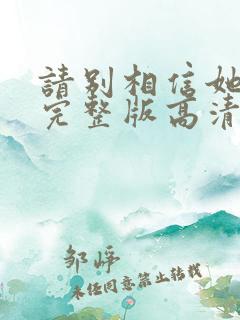 請别相信她
完整版高清
邹峥
未经同意禁止转载